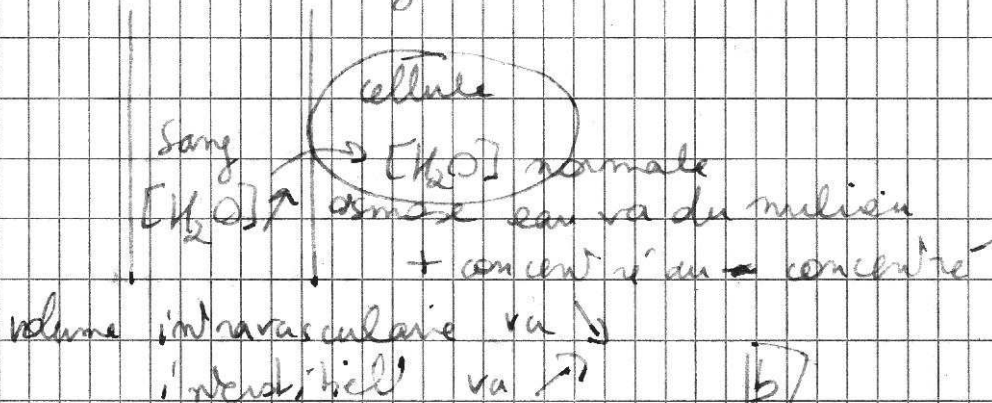 cellule
Sang
[H₂O] normale
[H₂O]↑ osmose eau va du milieu
+ concentré au - concentré
volume intravasculaire va ↘
interstitiel va ↗ b)